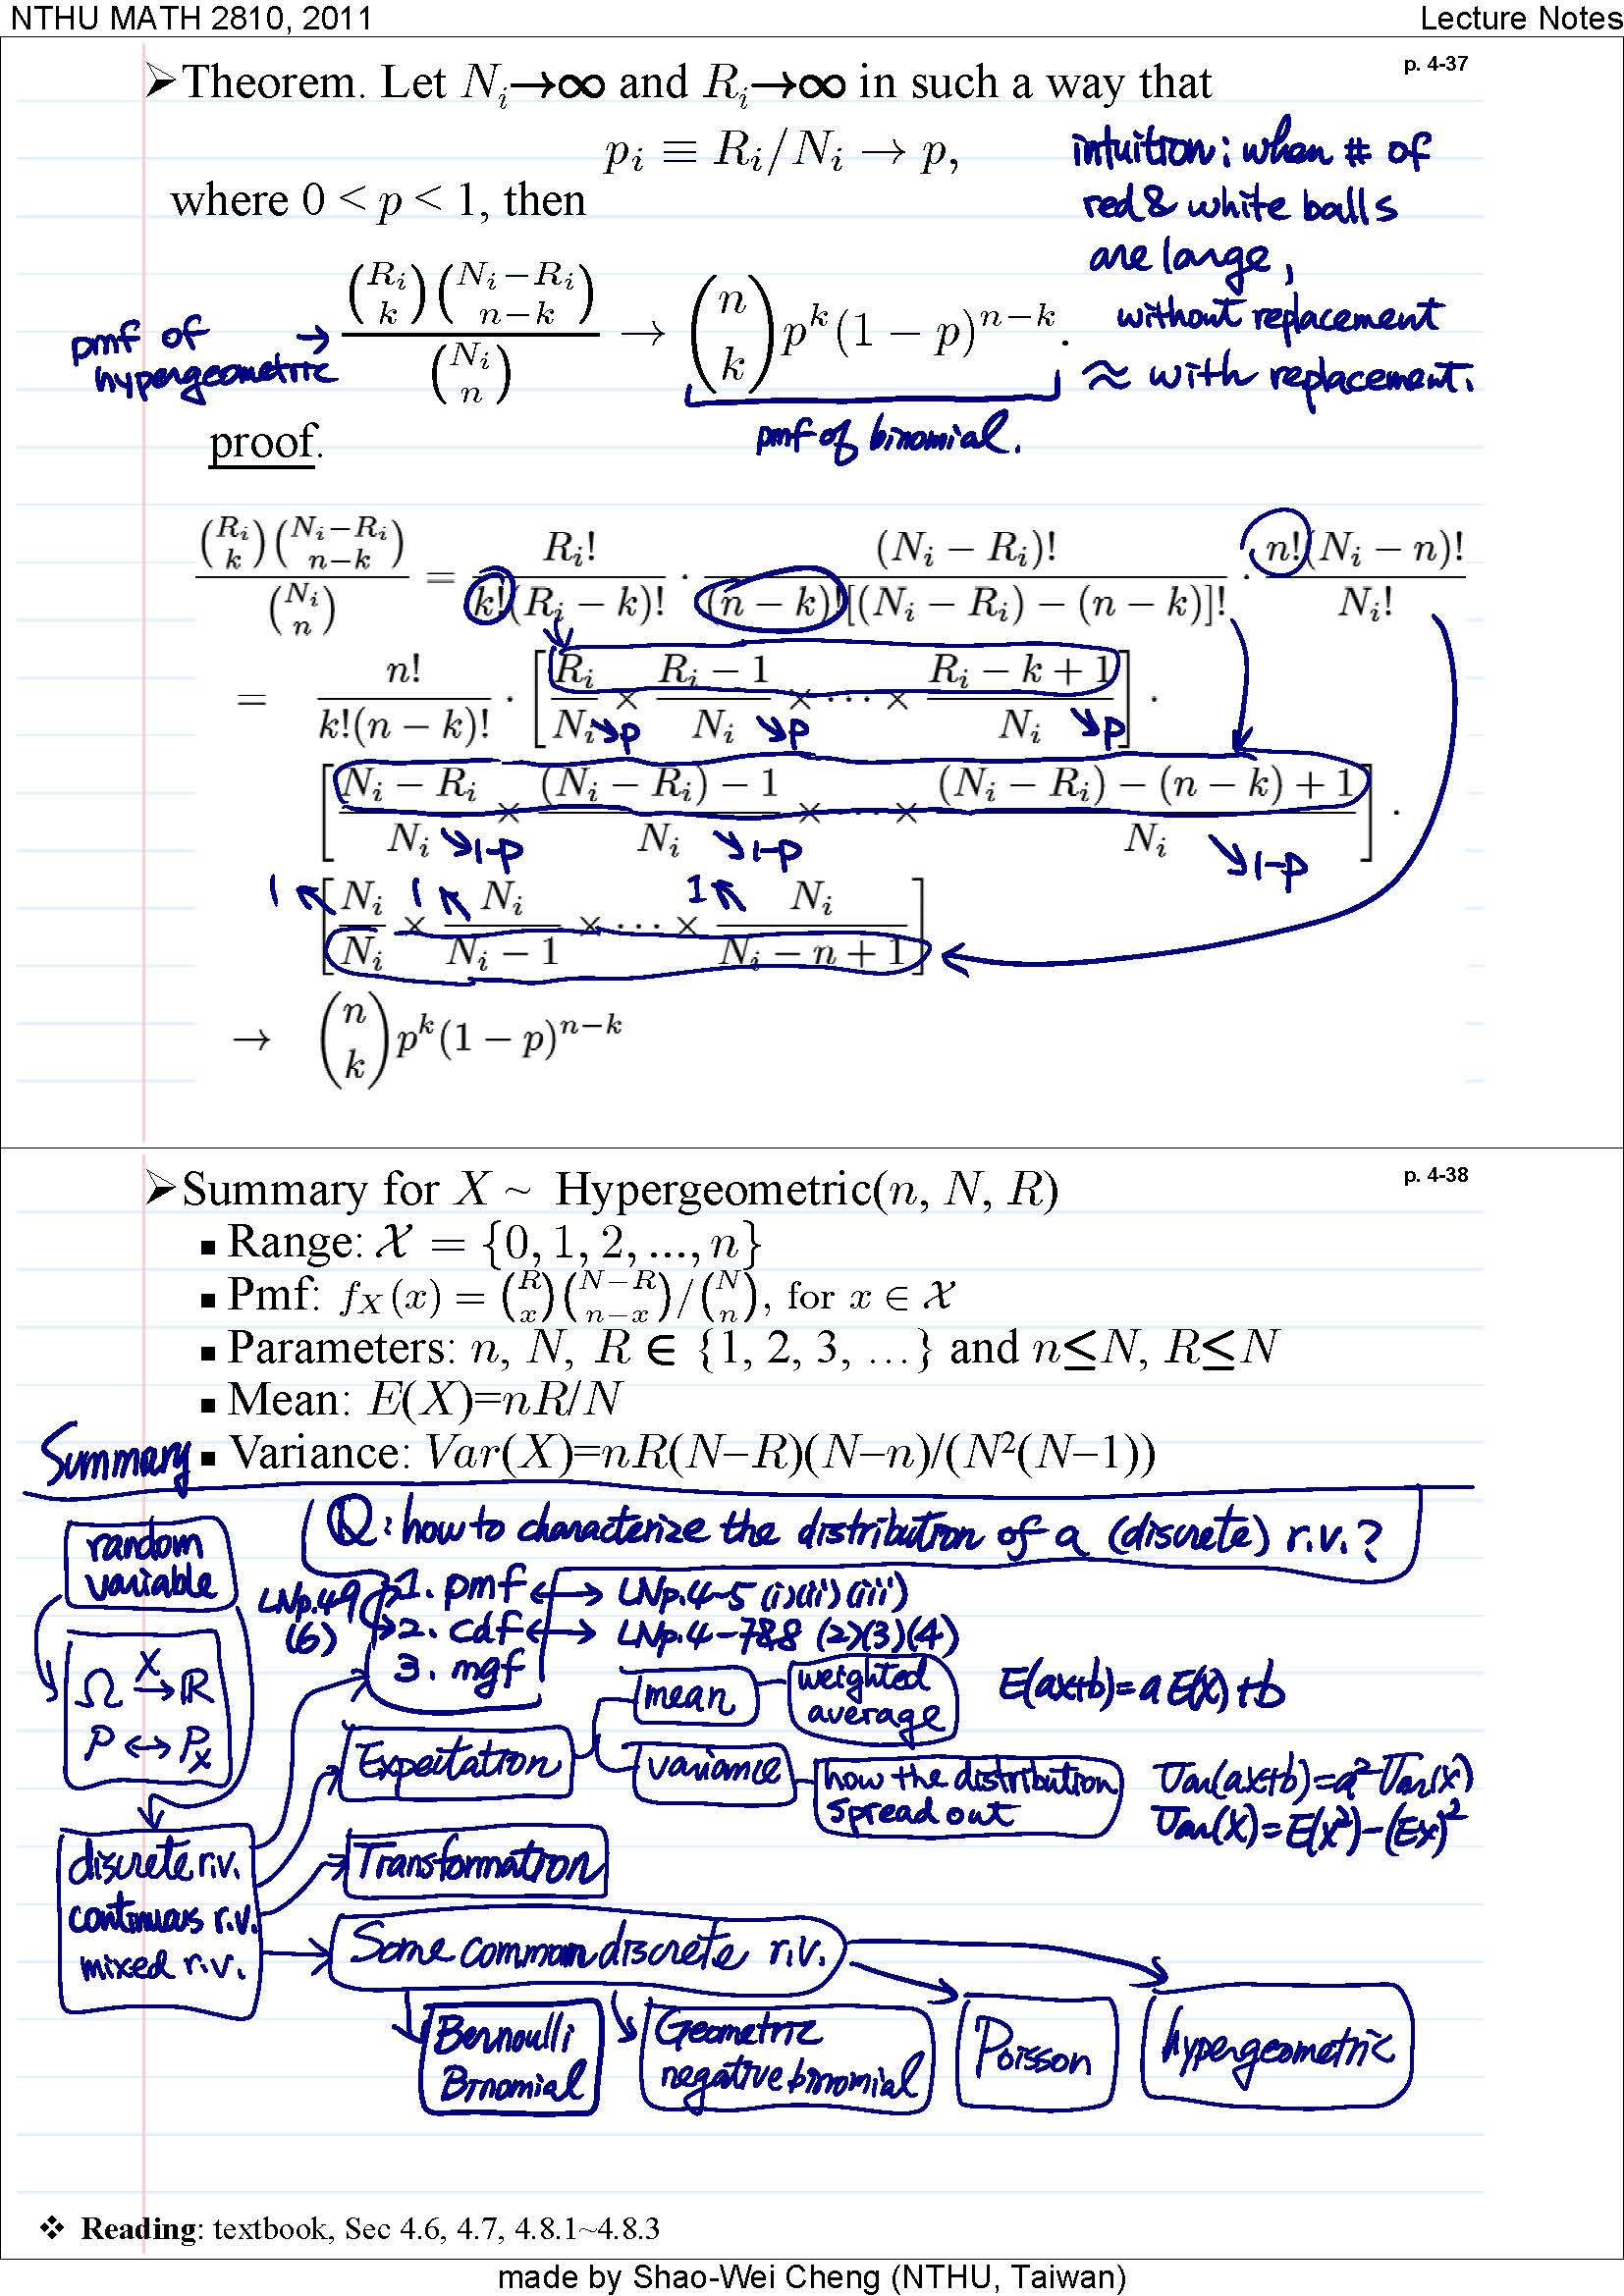 NTHU MATH 2810, 2011 Lecture Notes
p. 4-37
➢Theorem. Let N_i→∞ and R_i→∞ in such a way that
p_i ≡ R_i/N_i → p,
where 0 < p < 1, then
intuition: when # of
red & white balls
are large,
without replacement
≈ with replacement.
pmf of
hypergeometric →
\frac{\binom{R_i}{k}\binom{N_i-R_i}{n-k}}{\binom{N_i}{n}} → \binom{n}{k} p^k (1 − p)^{n−k}.
pmf of binomial.
proof.
\frac{\binom{R_i}{k}\binom{N_i-R_i}{n-k}}{\binom{N_i}{n}} = \frac{R_i!}{k!(R_i − k)!} · \frac{(N_i − R_i)!}{(n − k)![(N_i − R_i) − (n − k)]!} · \frac{n!(N_i − n)!}{N_i!}
= \frac{n!}{k!(n − k)!} · [\frac{R_i}{N_i} × \frac{R_i − 1}{N_i} × ··· × \frac{R_i − k + 1}{N_i}] ·
↘p ↘p ↘p
[\frac{N_i − R_i}{N_i} × \frac{(N_i − R_i) − 1}{N_i} × ··· × \frac{(N_i − R_i) − (n − k) + 1}{N_i}] ·
↘1-p ↘1-p ↘1-p
1↖ 1↖ 1↖
[\frac{N_i}{N_i} × \frac{N_i}{N_i − 1} × ··· × \frac{N_i}{N_i − n + 1}]
→ \binom{n}{k} p^k (1 − p)^{n−k}
p. 4-38
➢Summary for X ~ Hypergeometric(n, N, R)
▪ Range: 𝒳 = {0, 1, 2, ..., n}
▪ Pmf: f_X(x) = \binom{R}{x}\binom{N−R}{n−x}/\binom{N}{n}, for x ∈ 𝒳
▪ Parameters: n, N, R ∈ {1, 2, 3, …} and n≤N, R≤N
▪ Mean: E(X)=nR/N
▪ Variance: Var(X)=nR(N–R)(N–n)/(N²(N–1))
Summary
Q: how to characterize the distribution of a (discrete) r.v.?
random
variable
LNp.4-9
(6)
1. pmf ↔ LNp.4-5 (i)(ii)(iii)
2. cdf ↔ LNp.4-7&8 (2)(3)(4)
3. mgf
Ω X→ ℝ
P ↔ P_X
Expectation
mean
weighted
average
E(aX+b)=a E(X)+b
variance
how the distribution
spread out
Var(aX+b)=a² Var(X)
Var(X)=E(X²)-(EX)²
Transformation
discrete r.v.
continuous r.v.
mixed r.v.
Some common discrete r.v.
Bernoulli
Binomial
Geometric
negative binomial
Poisson
hypergeometric
❖ Reading: textbook, Sec 4.6, 4.7, 4.8.1~4.8.3
made by Shao-Wei Cheng (NTHU, Taiwan)